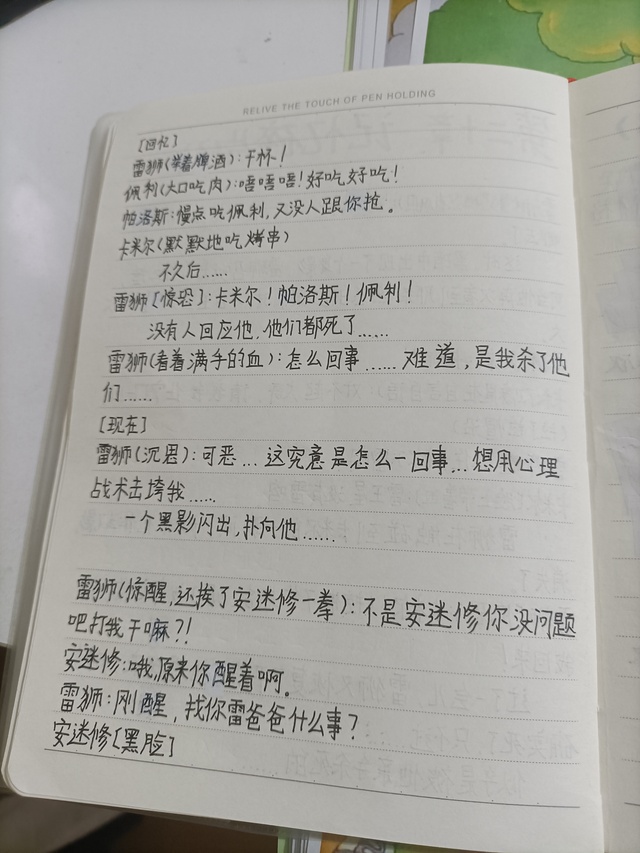 RELIVE THE TOUCH OF PEN HOLDING
[回忆]
雷狮(举着啤酒):干杯!
佩利(大口吃肉):唔唔唔!好吃好吃!
帕洛斯:慢点吃佩利,又没人跟你抢。
卡米尔(默默地吃烤串)
不久后……
雷狮[惊恐]:卡米尔!帕洛斯!佩利!
没有人回应他,他们都死了……
雷狮(看着满手的血):怎么回事……难道,是我杀了他
们……
[现在]
雷狮(沉思):可恶…这究竟是怎么一回事…想用心理
战术击垮我……
一个黑影闪出,扑向他……
雷狮(惊醒,还挨了安迷修一拳):不是安迷修你没问题
吧打我干嘛?!
安迷修:哦,原来你醒着啊。
雷狮:刚醒,找你雷爸爸什么事?
安迷修[黑脸]